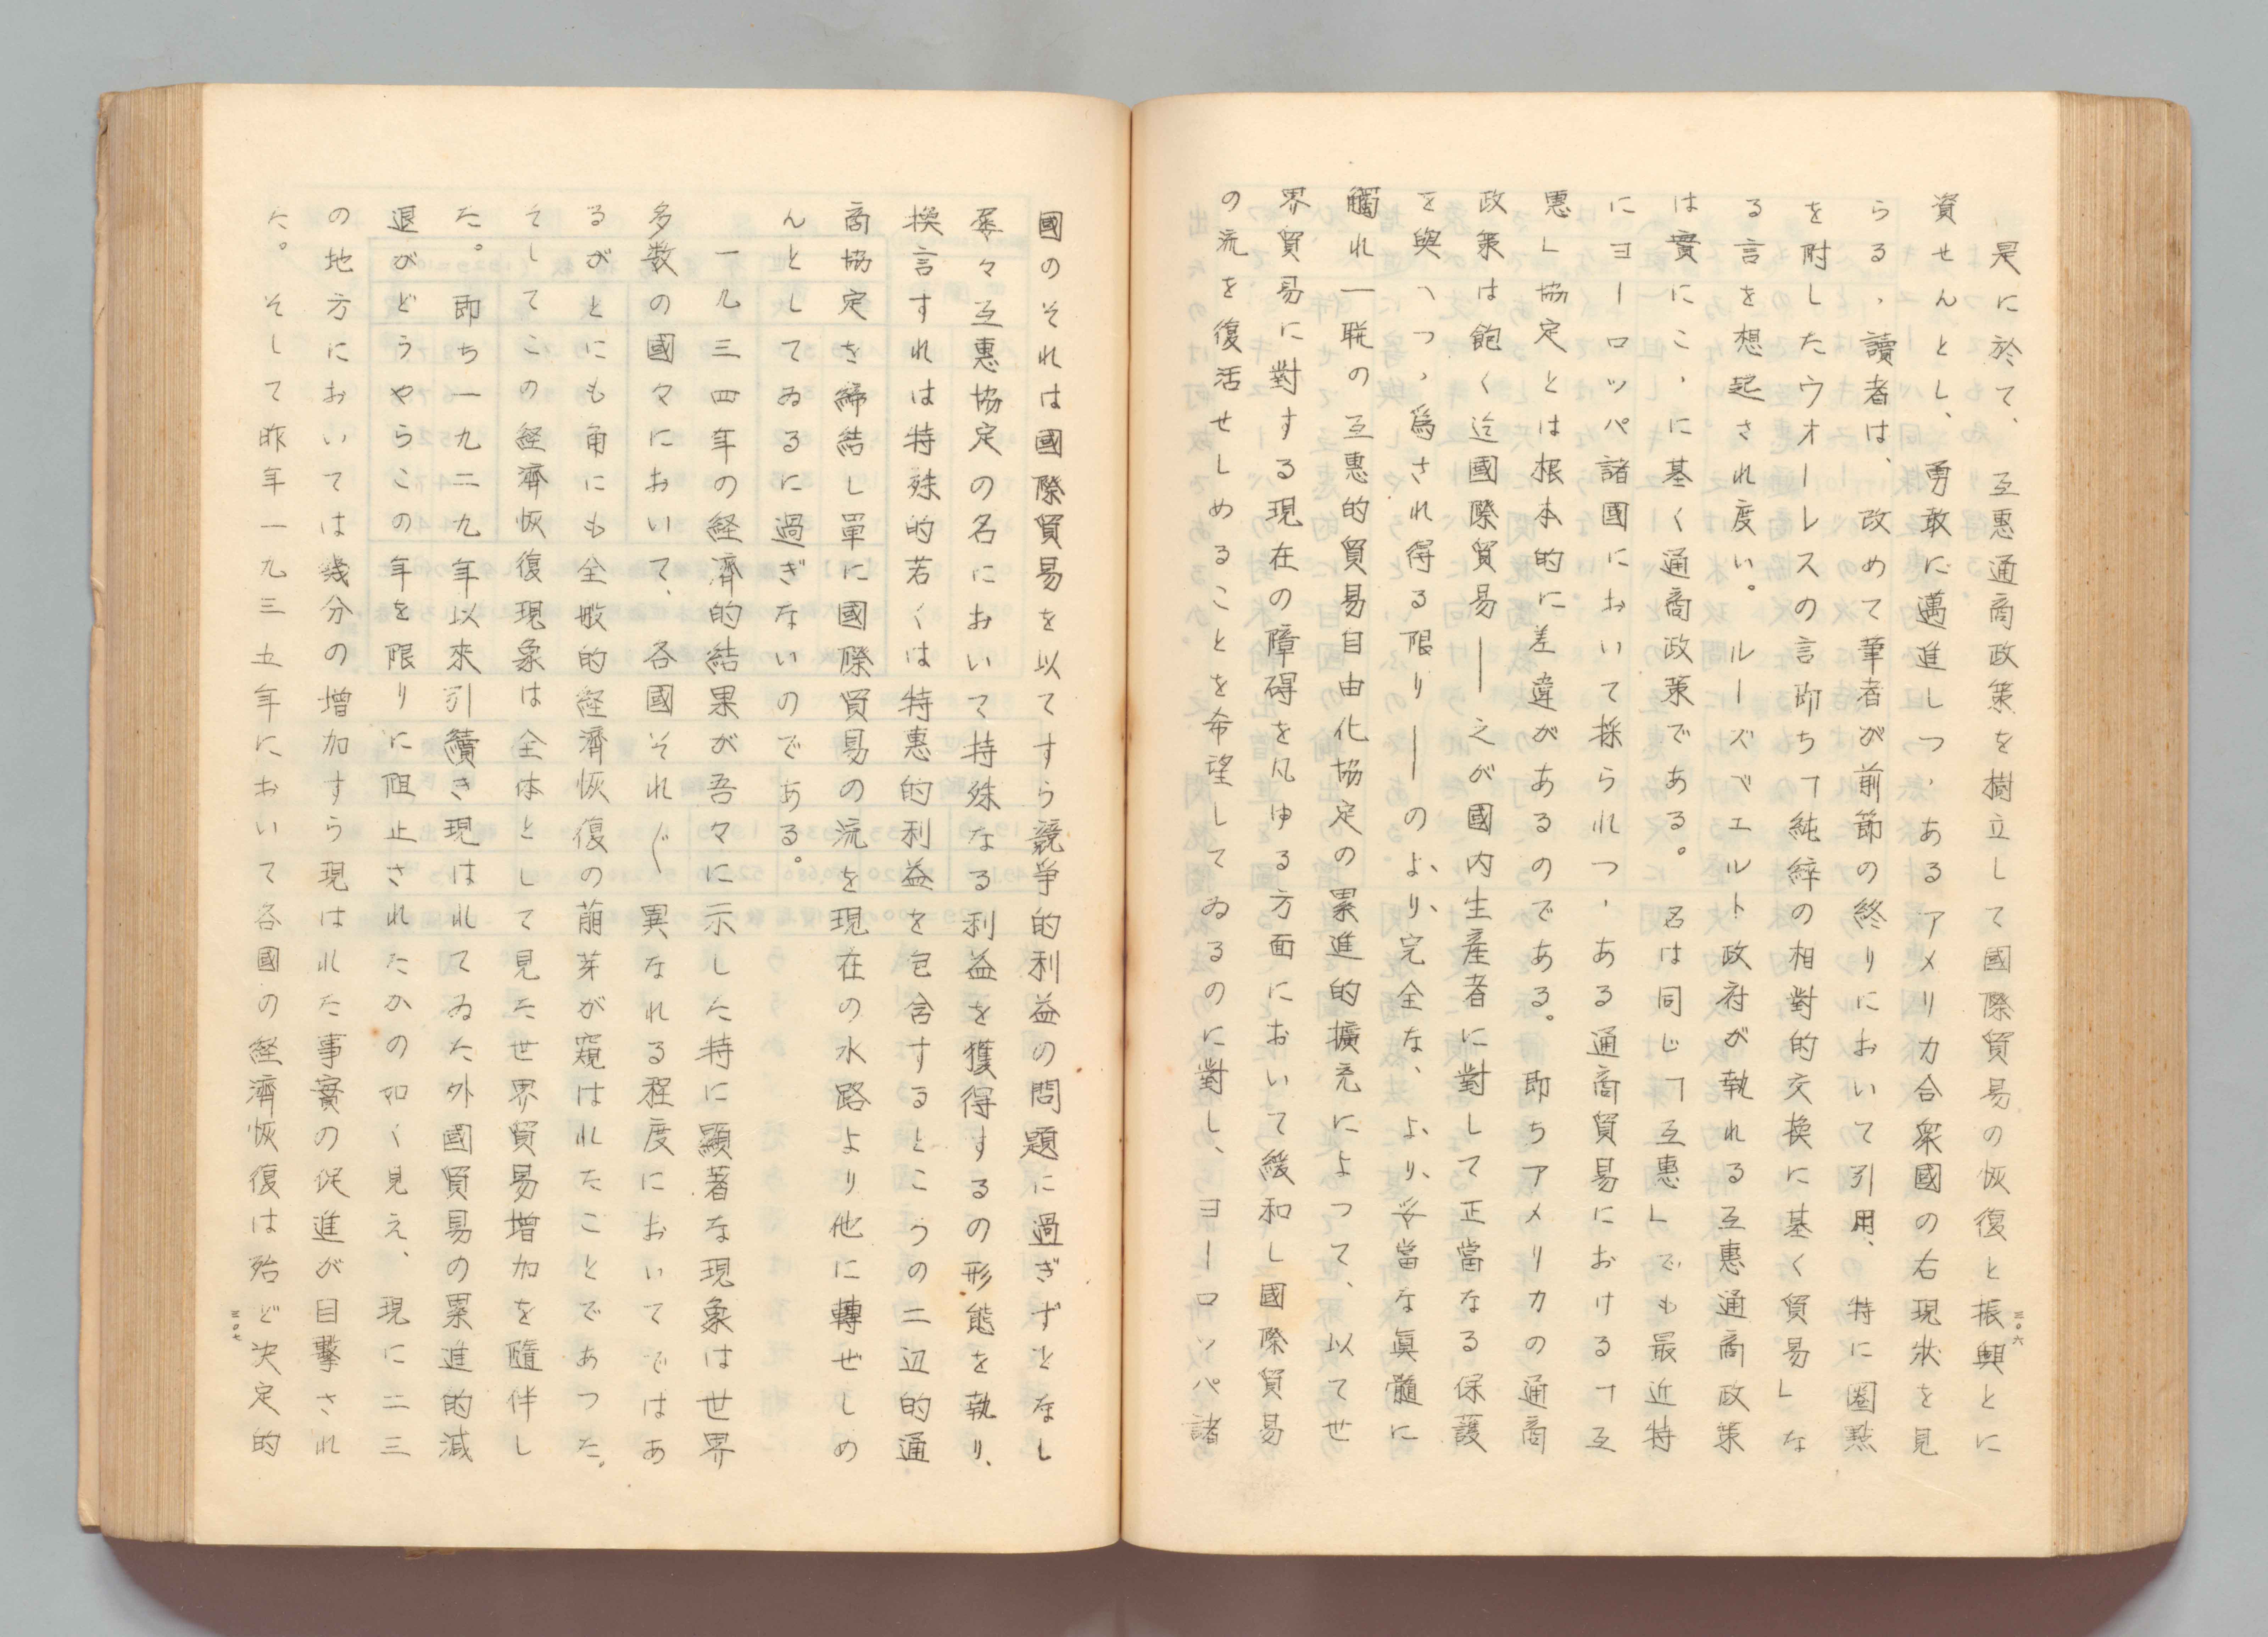 是に於て、互惠通商政策を樹立して國際貿易の恢復と振興とに
資せんとし、勇敢に邁進しつゝあるアメリカ合衆國の右現狀を見
らるゝ讀者は、改めて筆者が前節の終りにおいて引用、特に圏點
を附したウオーレスの言即ち「純粹の相對的交換に基く貿易」な
る言を想起され度い。ルーズベエルト政府が執れる互惠通商政策
は實にこゝに基く通商政策である。名は同じ「互惠」でも最近特
にヨーロッパ諸國において採られつゝある通商貿易における「互
惠」協定とは根本的に差違があるのである。即ちアメリカの通商
政策は飽く迄國際貿易——之が國内生産者に對して正當なる保護
を與へつゝ爲され得る限り——のより完全な、より妥當な眞髓に
觸れ一聯の互惠的貿易自由化協定の累進的擴充によって、以てせ
界貿易に對する現在の障碍を凡ゆる方面において緩和し國際貿易
の流を復活せしめることを希望してゐるのに對し、ヨーロッパ諸
三〇六
國のそれは國際貿易を以てすら競爭的利益の問題に過ぎずとなし
屡々互惠協定の名において特殊なる利益を獲得するの形態を執り、
換言すれは特殊的若くは特惠的利益を包含するところの二辺的通
商協定を締結し單に國際貿易の流を現在の水路より他に轉ぜしめ
んとしてゐるに過ぎないのである。
一九三四年の経濟的結果が吾々に示した特に顯著な現象は世界
多数の國々において、各國それ〴〵異なれる程度においてではあ
るがとにも角にも全般的経濟恢復の萠芽が窺はれたことであつた。
そしてこの経濟恢復現象は全体として見た世界貿易増加を隨伴し
た。即ち一九二九年以來引續き現はれてゐた外國貿易の累進的減
退がどうやらこの年を限りに阻止されたかの如く見え、現に二三
の地方においては幾分の増加すら現はれた事實の促進が目撃され
た。そして昨年一九三五年において各國の経濟恢復は殆ど決定的
三〇七